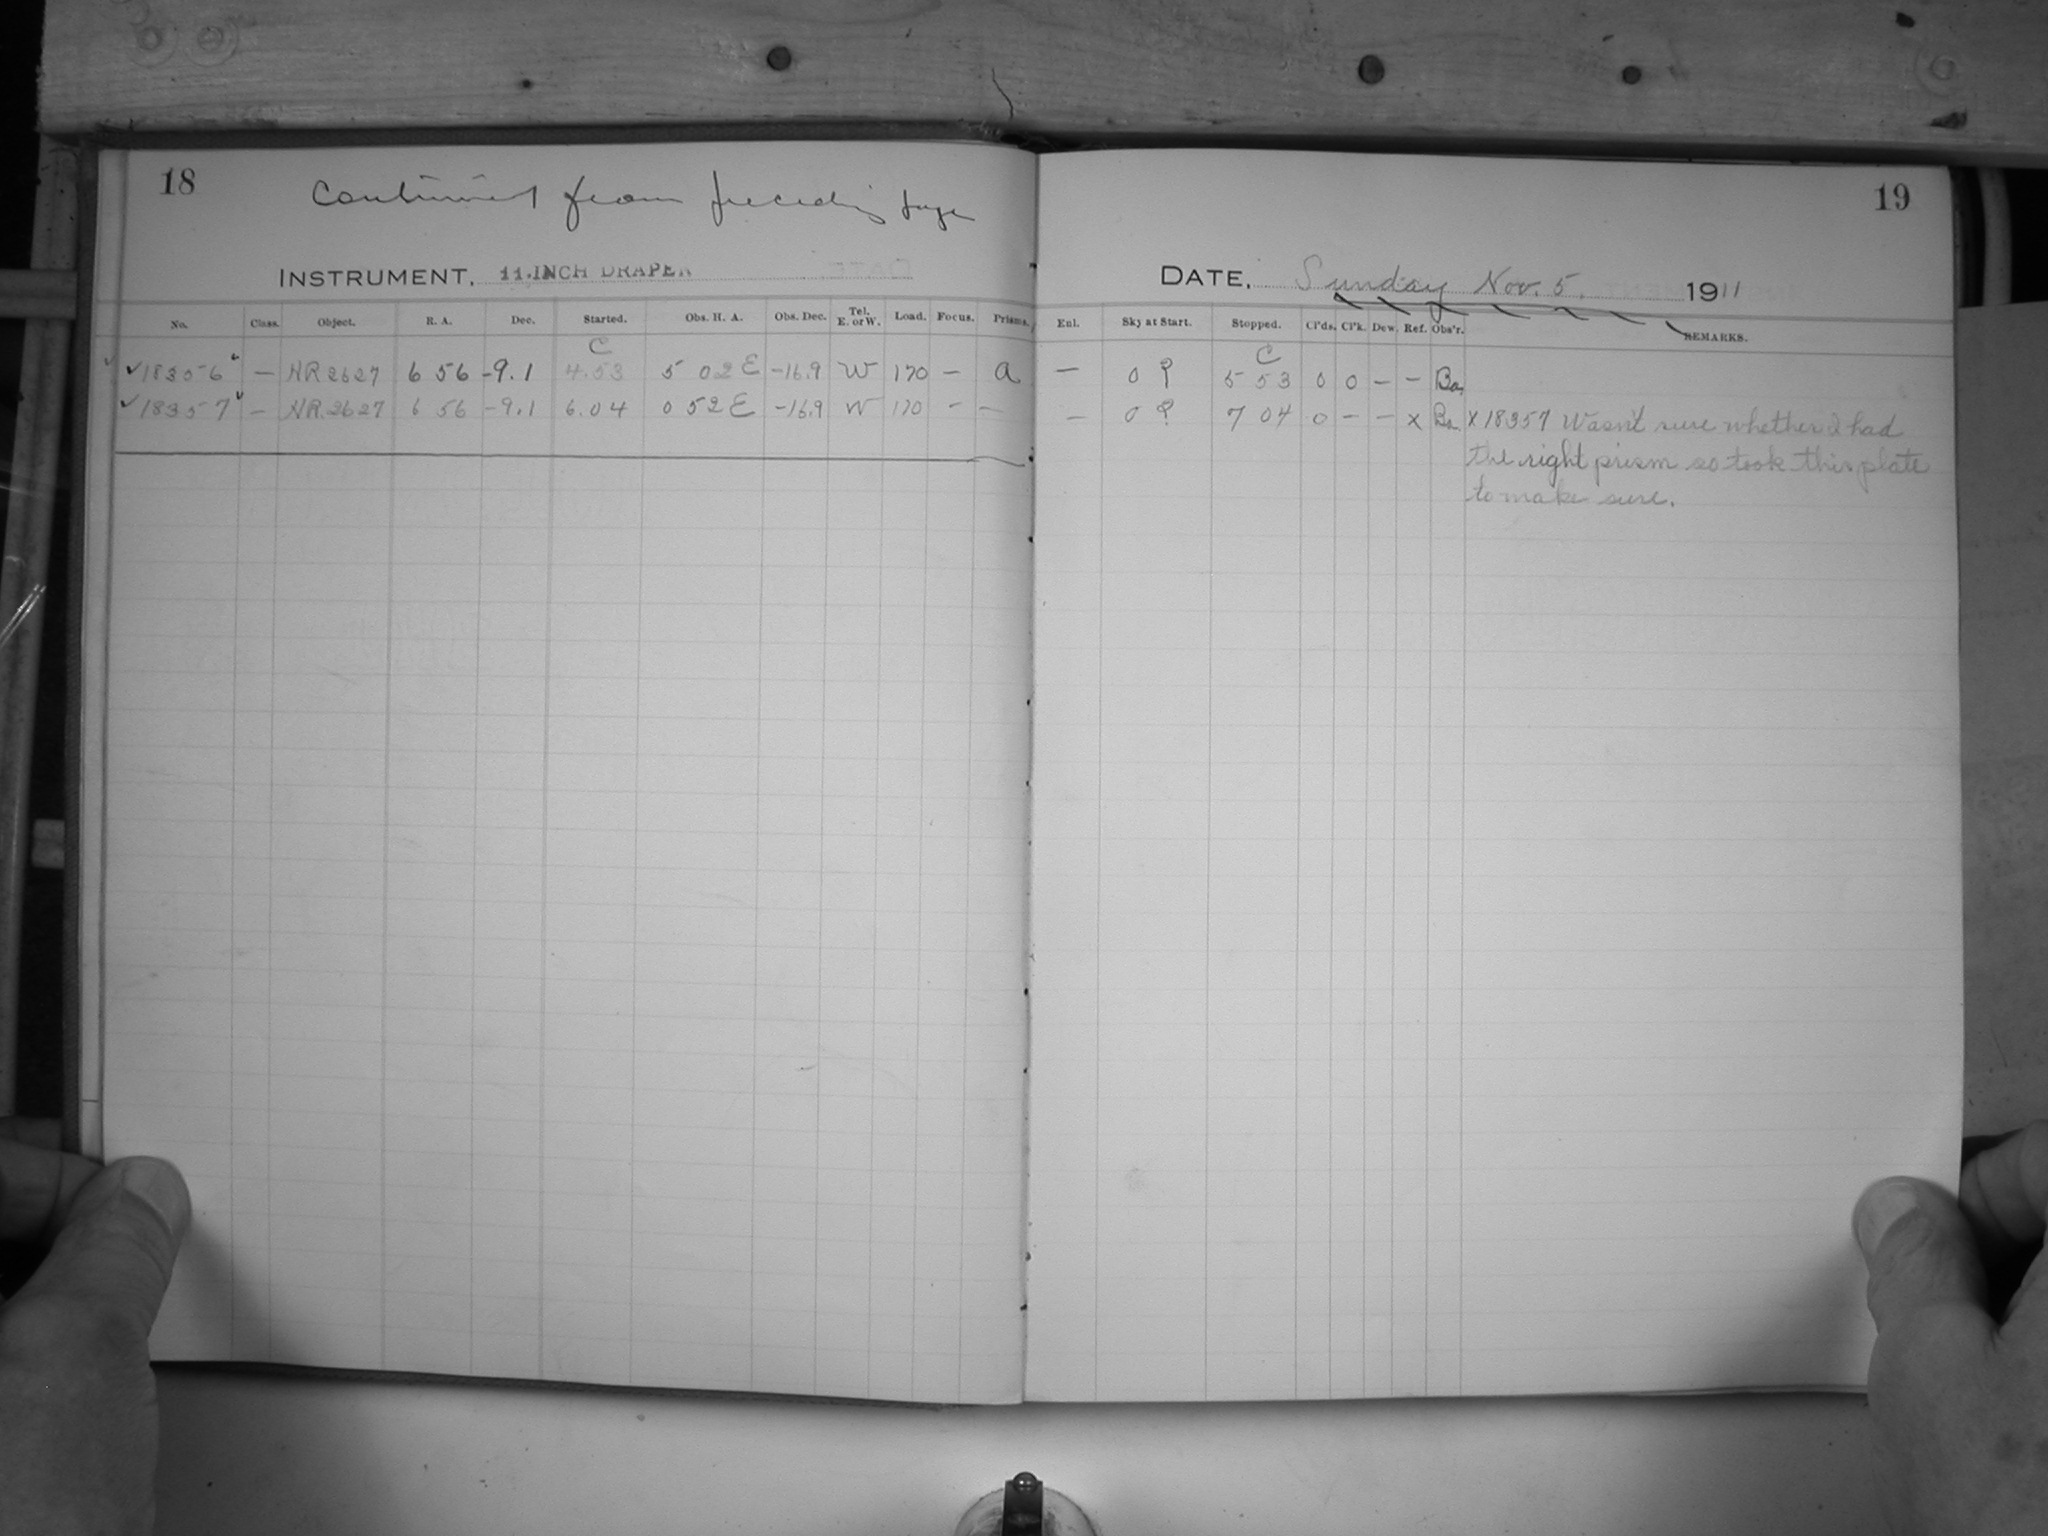 18
Continued from preceding page
INSTRUMENT. 11-INCH DRAPER
No. Class. Object. R. A. Dec. Started. Obs. H. A. Obs. Dec. Tel. E. or W. Load. Focus. Prisms.
C
✓18356 — HR 2627 6 56 -9.1 4.53 5 02 E -16.9 W 170 — a
✓18357 — HR 2627 6 56 -9.1 6.04 0 52 E -16.9 W 170 - —
19
DATE. Sunday Nov. 5. 1911
Enl. Sky at Start. Stopped. Cl'ds. Cl'k. Dew. Ref. Obs'r. REMARKS.
C
— 0 P 5 53 0 0 — — Ba.
— 0 P 7 04 0 — — X Ba. X 18357 Wasn't sure whether I had
the right prism so took this plate
to make sure.